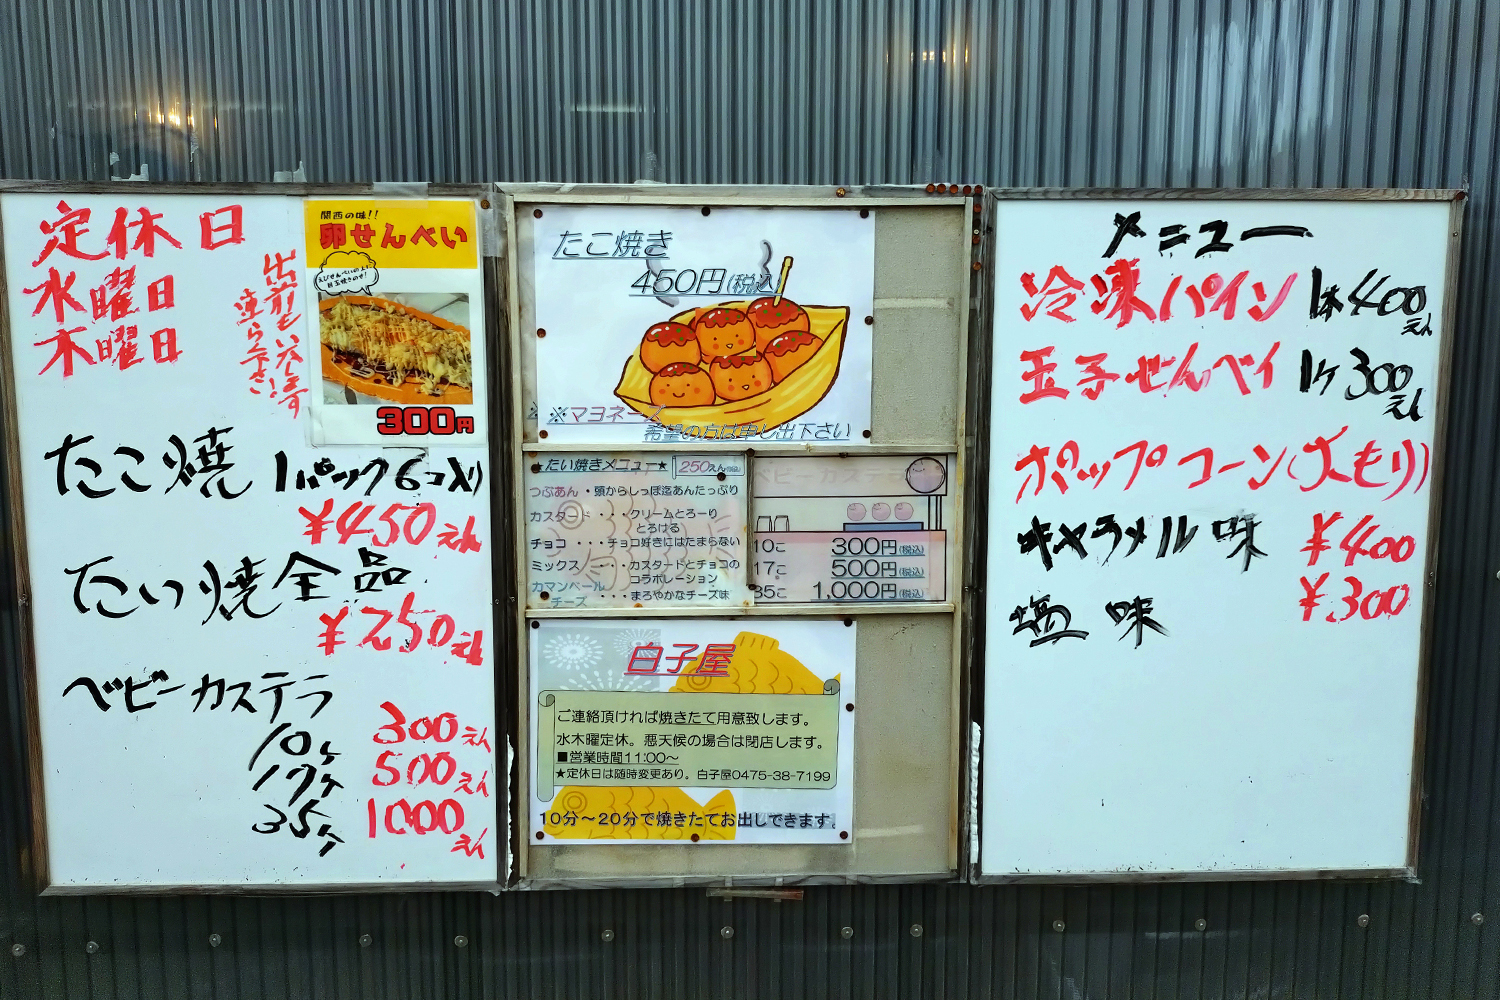 定休日
水曜日
木曜日
出前もいたします
連らく下さい!
関西の味!!
卵せんべい
えびせんべいの上に
目玉焼きのせ!
300円
たこ焼 1パック6コ入り
¥450えん
たい焼全品
¥250えん
ベビーカステラ
10ヶ 300えん
17ヶ 500えん
35ヶ 1000えん
たこ焼き
450円(税込)
※マヨネーズ
希望の方は申し出下さい
★たい焼きメニュー★ 250えん(税込)
つぶあん ・頭からしっぽ迄あんたっぷり
カスタード ・・・クリームとろーり
とろける
チョコ ・・・チョコ好きにはたまらない
ミックス ・・・カスタードとチョコの
コラボレーション
カマンベール
チーズ ・・・まろやかなチーズ味
ベビーカステラ
10こ 300円(税込)
17こ 500円(税込)
35こ 1,000円(税込)
白子屋
ご連絡頂ければ焼きたて用意致します。
水木曜定休。悪天候の場合は閉店します。
■営業時間11:00〜
★定休日は随時変更あり。白子屋0475-38-7199
10分〜20分で焼きたてお出しできます。
メニュー
冷凍パイン 1本400えん
玉子せんべイ 1ヶ300えん
ポップコーン(大もり)
キャラメル味 ¥400
塩味 ¥300